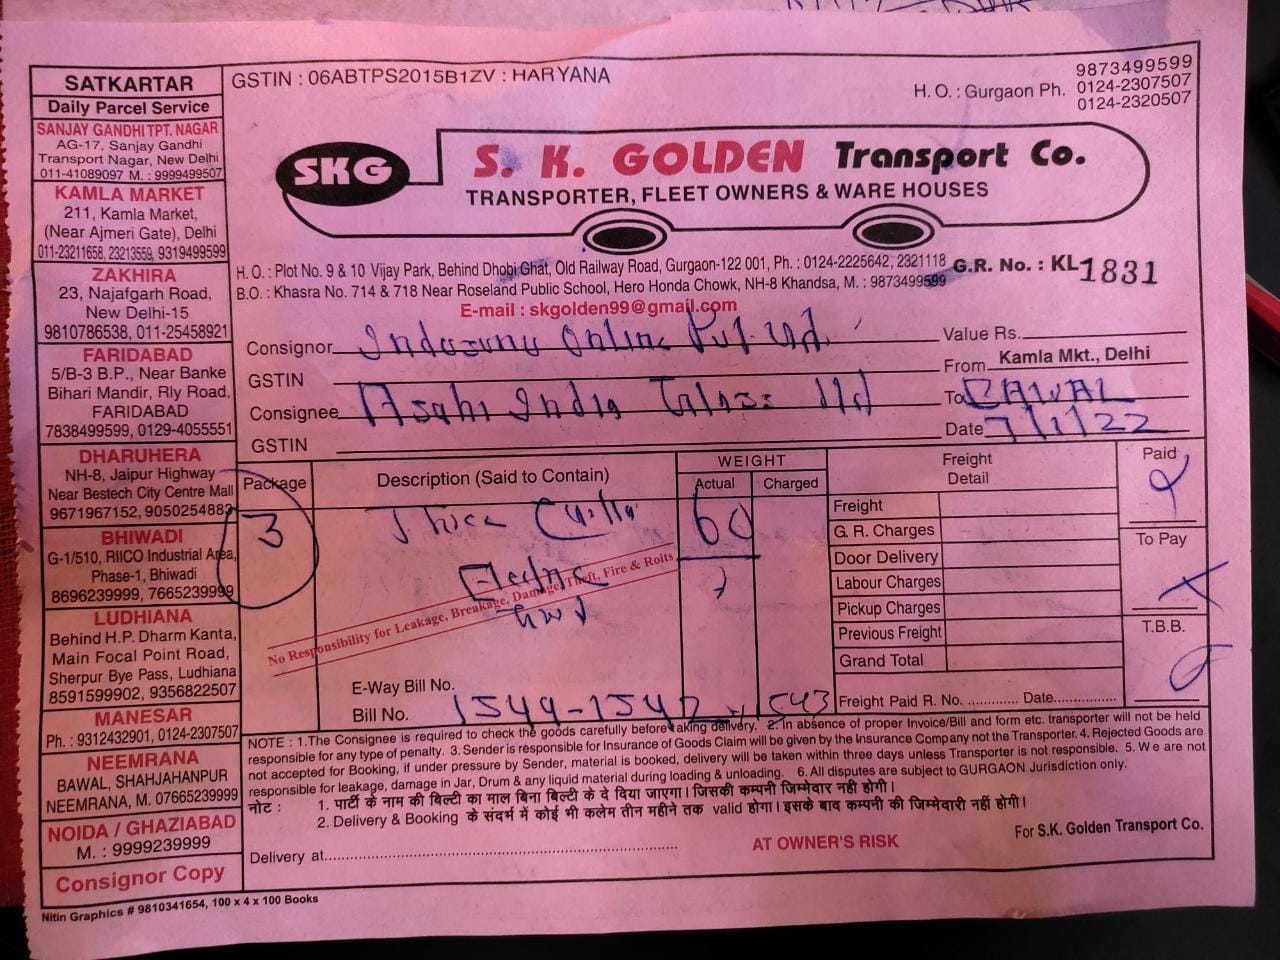 SATKARTAR
Daily Parcel Service
SANJAY GANDHI TPT. NAGAR
AG-17, Sanjay Gandhi
Transport Nagar, New Delhi
011-41089097 M. : 9999499507
KAMLA MARKET
211, Kamla Market,
(Near Ajmeri Gate), Delhi
011-23211658, 23213559, 9319499599
ZAKHIRA
23, Najafgarh Road,
New Delhi-15
9810786538, 011-25458921
FARIDABAD
5/B-3 B.P., Near Banke
Bihari Mandir, Rly Road,
FARIDABAD
7838499599, 0129-4055551
DHARUHERA
NH-8, Jaipur Highway
Near Bestech City Centre Mall
9671967152, 9050254883
BHIWADI
G-1/510, RIICO Industrial Area,
Phase-1, Bhiwadi
8696239999, 7665239999
LUDHIANA
Behind H.P. Dharm Kanta,
Main Focal Point Road,
Sherpur Bye Pass, Ludhiana
8591599902, 9356822507
MANESAR
Ph. : 9312432901, 0124-2307507
NEEMRANA
BAWAL, SHAHJAHANPUR
NEEMRANA, M. 07665239999
NOIDA / GHAZIABAD
M. : 9999239999
Consignor Copy
Nitin Graphics # 9810341654, 100 x 4 x 100 Books
GSTIN : 06ABTPS2015B1ZV : HARYANA
H. O. : Gurgaon Ph. 9873499599
0124-2307507
0124-2320507
SKG
S. K. GOLDEN Transport Co.
TRANSPORTER, FLEET OWNERS & WARE HOUSES
H. O. : Plot No. 9 & 10 Vijay Park, Behind Dhobi Ghat, Old Railway Road, Gurgaon-122 001, Ph. : 0124-2225642, 2321118
B.O. : Khasra No. 714 & 718 Near Roseland Public School, Hero Honda Chowk, NH-8 Khandsa, M. : 9873499599
E-mail : skgolden99@gmail.com
G.R. No. : KL 1831
Consignor Online Pvt. Ltd.
GSTIN
Consignee Asahi India Glass Ltd
GSTIN
Value Rs.
From Kamla Mkt., Delhi
To BAWAL
Date 7/1/22
Package
Description (Said to Contain)
WEIGHT
Actual Charged
Freight
Detail
Paid
3
60
Electric
Freight
G. R. Charges
Door Delivery
Labour Charges
Pickup Charges
Previous Freight
Grand Total
To Pay
T.B.B.
No Responsibility for Leakage, Breakage, Damage, Theft, Fire & Roits
E-Way Bill No.
Bill No. 1544-1542 543
Freight Paid R. No. ............ Date...............
NOTE : 1.The Consignee is required to check the goods carefully before taking delivery. 2. In absence of proper Invoice/Bill and form etc. transporter will not be held
responsible for any type of penalty. 3. Sender is responsible for Insurance of Goods Claim will be given by the Insurance Company not the Transporter. 4. Rejected Goods are
not accepted for Booking, if under pressure by Sender, material is booked, delivery will be taken within three days unless Transporter is not responsible. 5. We are not
responsible for leakage, damage in Jar, Drum & any liquid material during loading & unloading. 6. All disputes are subject to GURGAON Jurisdiction only.
नोट : 1. पार्टी के नाम की बिल्टी का माल बिना बिल्टी के दे दिया जाएगा। जिसकी कम्पनी जिम्मेदार नही होगी।
2. Delivery & Booking के संदर्भ में कोई भी कलेम तीन महीने तक valid होगा। इसके बाद कम्पनी की जिम्मेदारी नहीं होगी।
Delivery at..........................................................................
AT OWNER'S RISK
For S.K. Golden Transport Co.